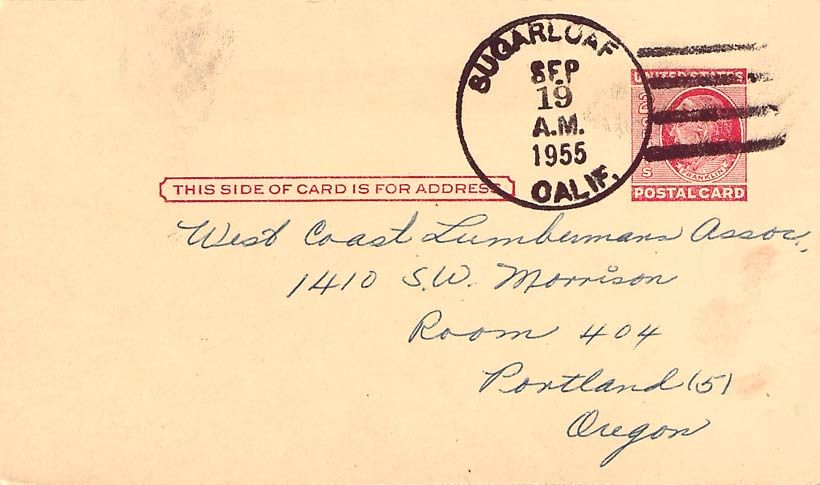 SUGARLOAF
SEP
19
A.M.
1955
CALIF.
UNITED STATES
2
FRANKLIN
POSTAL CARD
THIS SIDE OF CARD IS FOR ADDRESS
West Coast Lumbermans Assoc.,
1410 S.W. Morrison
Room 404
Portland (5)
Oregon